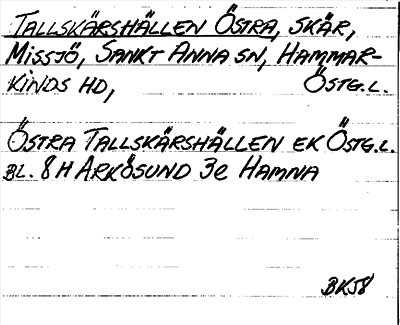 TALLSKÄRSHÄLLEN ÖSTRA, SKÄR,
MISSJÖ, SANKT ANNA SN, HAMMAR-
KINDS HD, ÖSTG.L.
ÖSTRA TALLSKÄRSHÄLLEN EK ÖSTG.L.
BL. 8H ARKÖSUND 3e HAMNA
BK58